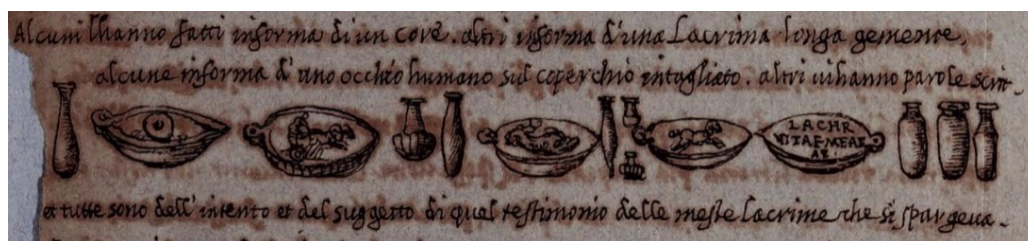 Alcuni lhanno fatti informa di un core. altri informa d'una Lacrima longa gemente,
alcune informa d'uno occhio humano sul coperchio intagliato. altri ui hanno parole scrit-
LACHR
VITAE·MEAE
et tutte sono dell'intento et del suggetto di quel testimonio delle meste Lacrime che si spargeua-